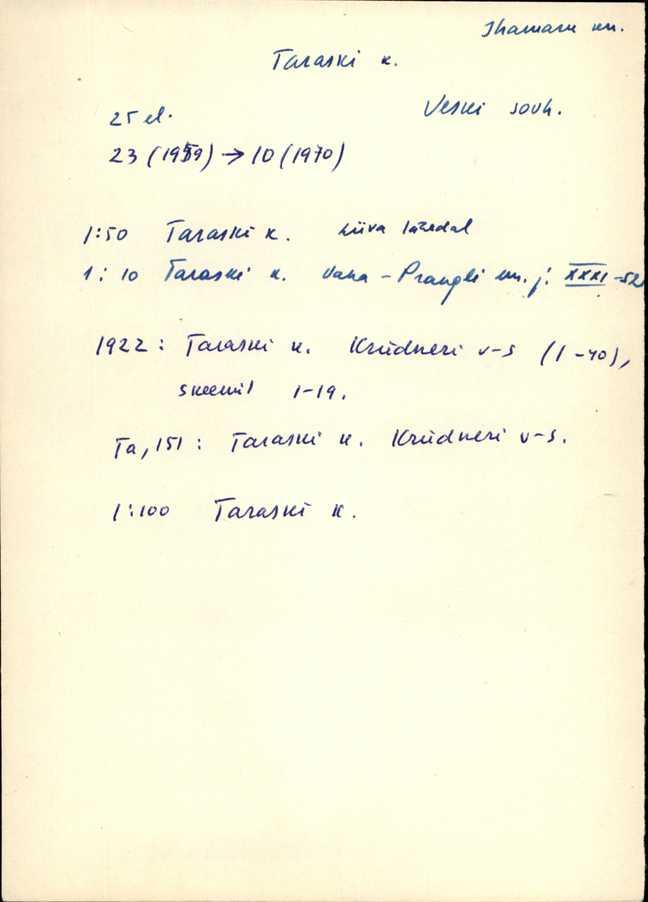 Ihamaru kn.
Taraski k.
25 el. Veski sovh.
23 (1959) → 10 (1970)
1:50 Taraski k. Liiva lähedal
1:10 Taraski k. Vana-Prangli kn. j. XXXI-52
1922: Taraski k. Krüdneri v-s (1-40),
skeemil 1-19.
Ta, 151: Taraski k. Krüdneri v-s.
1:100 Taraski k.